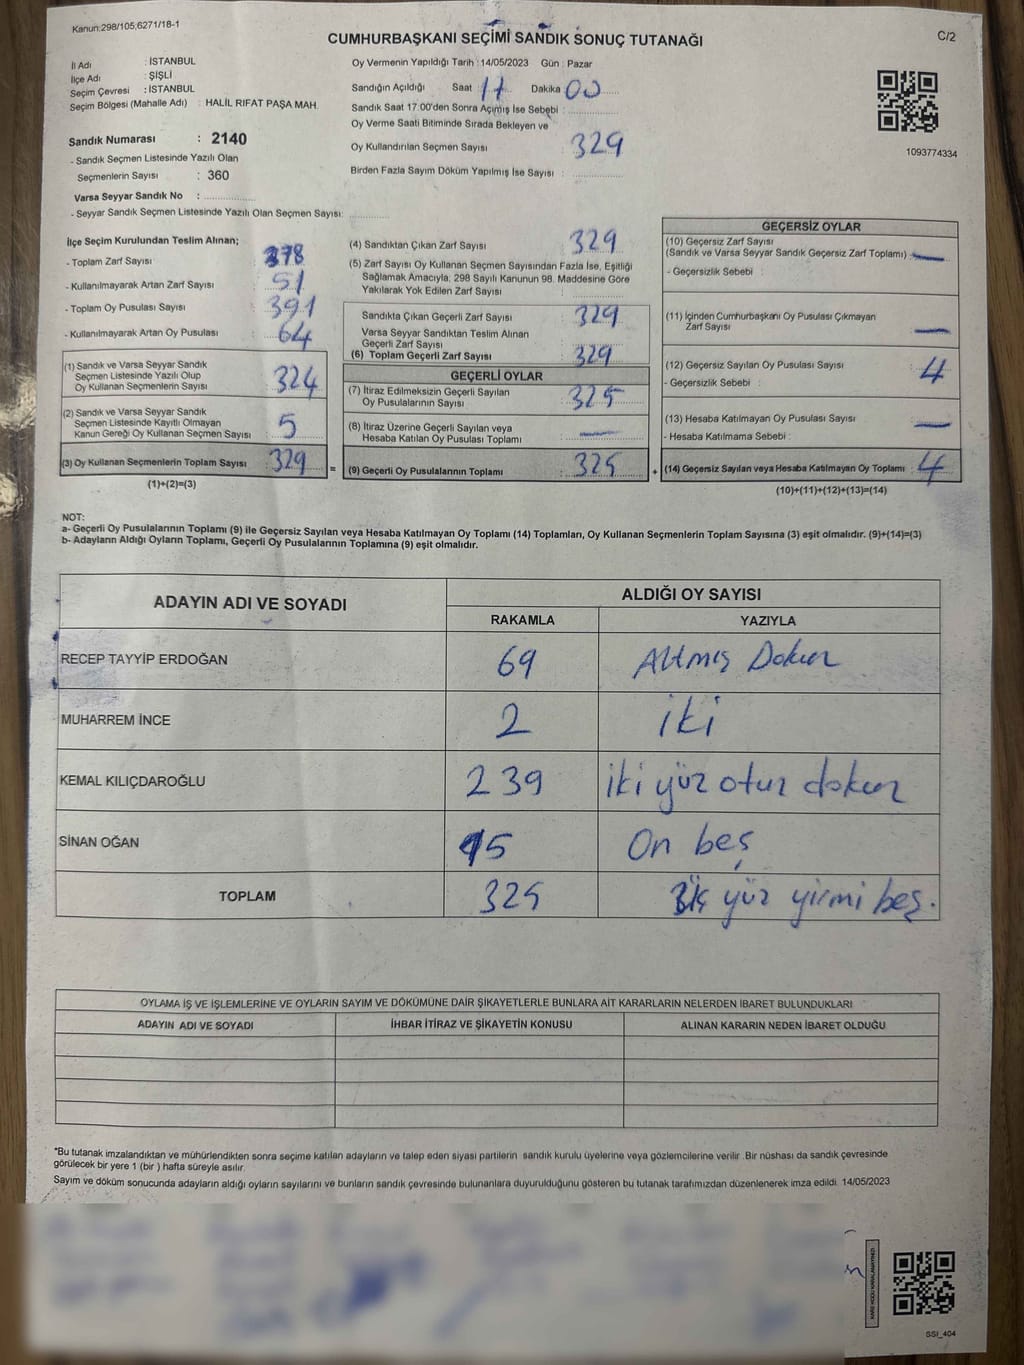 Kanun:298/105,6271/18-1
CUMHURBAŞKANI SEÇİMİ SANDIK SONUÇ TUTANAĞI
C/2
İl Adı : İSTANBUL
İlçe Adı : ŞİŞLİ
Seçim Çevresi : İSTANBUL
Seçim Bölgesi (Mahalle Adı) : HALİL RIFAT PAŞA MAH.
Sandık Numarası : 2140
- Sandık Seçmen Listesinde Yazılı Olan
Seçmenlerin Sayısı : 360
Varsa Seyyar Sandık No :
- Seyyar Sandık Seçmen Listesinde Yazılı Olan Seçmen Sayısı:
Oy Vermenin Yapıldığı Tarih : 14/05/2023 Gün : Pazar
Sandığın Açıldığı Saat 17 Dakika 00
Sandık Saat 17:00'den Sonra Açımış İse Sebebi :
Oy Verme Saati Bitiminde Sırada Bekleyen ve
Oy Kullandırılan Seçmen Sayısı : 329
Birden Fazla Sayım Döküm Yapılmış İse Sayısı :
1093774334
İlçe Seçim Kurulundan Teslim Alınan;
- Toplam Zarf Sayısı : 378
- Kullanılmayarak Artan Zarf Sayısı : 51
- Toplam Oy Pusulası Sayısı : 391
- Kullanılmayarak Artan Oy Pusulası : 64
(1) Sandık ve Varsa Seyyar Sandık
Seçmen Listesinde Yazılı Olup
Oy Kullanan Seçmenlerin Sayısı : 324
(2) Sandık ve Varsa Seyyar Sandık
Seçmen Listesinde Kayıtlı Olmayan
Kanun Gereği Oy Kullanan Seçmen Sayısı : 5
(3) Oy Kullanan Seçmenlerin Toplam Sayısı : 329 =
(1)+(2)=(3)
(4) Sandıktan Çıkan Zarf Sayısı : 329
(5) Zarf Sayısı Oy Kullanan Seçmen Sayısından Fazla İse, Eşitliği
Sağlamak Amacıyla, 298 Sayılı Kanunun 98. Maddesine Göre
Yakılarak Yok Edilen Zarf Sayısı :
Sandıkta Çıkan Geçerli Zarf Sayısı : 329
Varsa Seyyar Sandıktan Teslim Alınan
Geçerli Zarf Sayısı :
(6) Toplam Geçerli Zarf Sayısı : 329
GEÇERLİ OYLAR
(7) İtiraz Edilmeksizin Geçerli Sayılan
Oy Pusulalarının Sayısı : 325
(8) İtiraz Üzerine Geçerli Sayılan veya
Hesaba Katılan Oy Pusulası Toplamı : —
(9) Geçerli Oy Pusulalarının Toplamı : 325 +
GEÇERSİZ OYLAR
(10) Geçersiz Zarf Sayısı
(Sandık ve Varsa Seyyar Sandık Geçersiz Zarf Toplamı) : —
- Geçersizlik Sebebi :
(11) İçinden Cumhurbaşkanı Oy Pusulası Çıkmayan
Zarf Sayısı : —
(12) Geçersiz Sayılan Oy Pusulası Sayısı : 4
- Geçersizlik Sebebi :
(13) Hesaba Katılmayan Oy Pusulası Sayısı : —
- Hesaba Katılmama Sebebi :
(14) Geçersiz Sayılan veya Hesaba Katılmayan Oy Toplamı : 4
(10)+(11)+(12)+(13)=(14)
NOT:
a- Geçerli Oy Pusulalarının Toplamı (9) ile Geçersiz Sayılan veya Hesaba Katılmayan Oy Toplamı (14) Toplamları, Oy Kullanan Seçmenlerin Toplam Sayısına (3) eşit olmalıdır. (9)+(14)=(3)
b- Adayların Aldığı Oyların Toplamı, Geçerli Oy Pusulalarının Toplamına (9) eşit olmalıdır.
ADAYIN ADI VE SOYADI ALDIĞI OY SAYISI
RAKAMLA YAZIYLA
RECEP TAYYİP ERDOĞAN 69 Altmış Dokuz
MUHARREM İNCE 2 iki
KEMAL KILIÇDAROĞLU 239 iki yüz otuz dokuz
SİNAN OĞAN 15 On beş
TOPLAM 325 Üç yüz yirmi beş.
OYLAMA İŞ VE İŞLEMLERİNE VE OYLARIN SAYIM VE DÖKÜMÜNE DAİR ŞİKAYETLERLE BUNLARA AİT KARARLARIN NELERDEN İBARET BULUNDUKLARI
ADAYIN ADI VE SOYADI İHBAR İTİRAZ VE ŞİKAYETİN KONUSU ALINAN KARARIN NEDEN İBARET OLDUĞU
*Bu tutanak imzalandıktan ve mühürlendikten sonra seçime katılan adayların ve talep eden siyasi partilerin sandık kurulu üyelerine veya gözlemcilerine verilir. Bir nüshası da sandık çevresinde
görülecek bir yere 1 (bir) hafta süreyle asılır.
Sayım ve döküm sonucunda adayların aldığı oyların sayılarını ve bunların sandık çevresinde bulunanlara duyurulduğunu gösteren bu tutanak tarafımızdan düzenlenerek imza edildi. 14/05/2023
KARE KODU KARALAMAYINIZ!
SSI_404